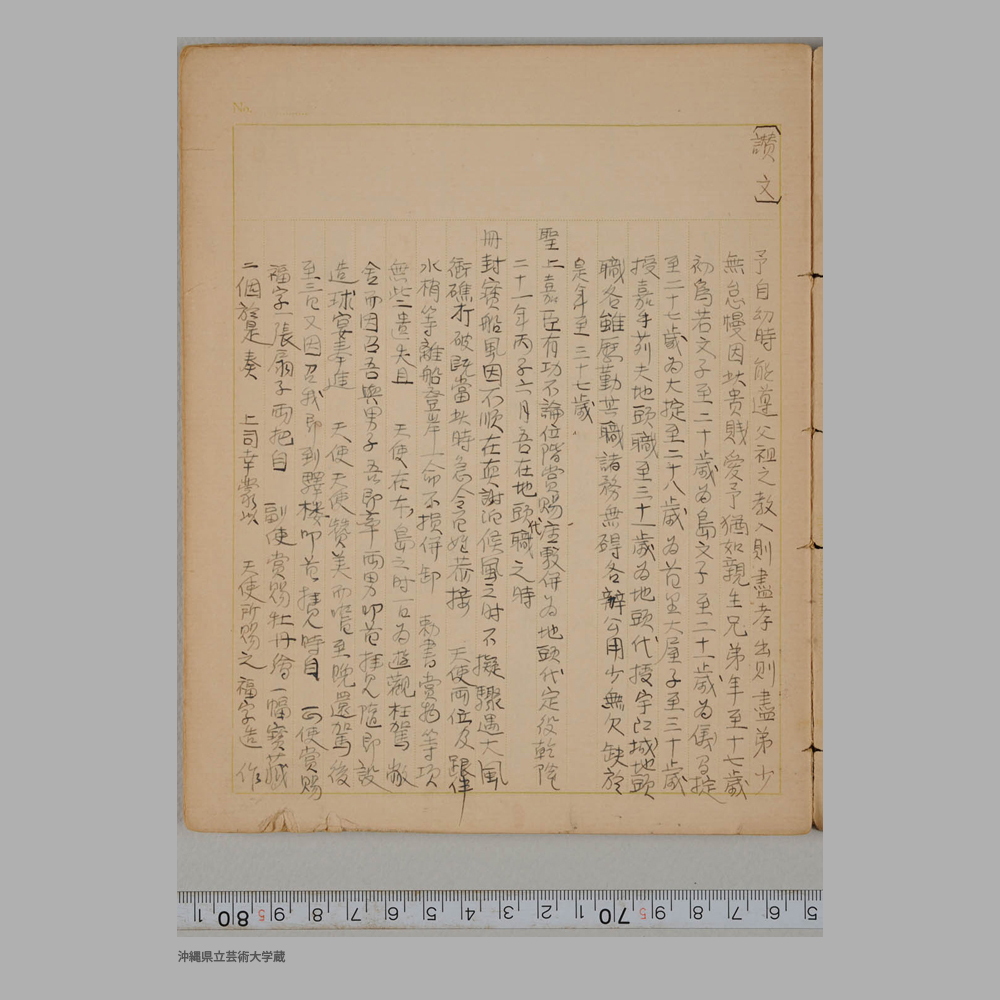 〔讃文〕
予自幼時能遵父祖之教入則盡孝出則盡弟少
無怠慢因此貴賎愛予猶如親生兄弟年至十七歳
初為若文子至二十歳為島文子至二十一歳為儀間掟
至二十七歳為大掟至二十八歳為首里大屋子至三十歳
授嘉手苅夫地頭職至三十一歳為地頭代授宇江城地頭
職各雖歴勤其職諸務無碍各辦公用少無欠缺於
是年至三十七歳
聖上嘉臣有功不論位階賞賜座敷併為地頭代定役乾隆
二十一年丙子六月吾在地頭代職之時
冊封寳船風因不順在真謝泊候風之时不擬驟遇大風
衝礁打破既當此時急令 接 天使両位及跟伴
水梢等離船登岸人命不損併卸 勅書賞物等項
無些二遺失且 天使在本島之时 為遊觀枉駕敝
舎而因召吾與男子吾即率両男叩首拝見随即設
造球宴奉進 天使天使賛美而嘗至晩還駕後
至三 又因召我即到驛楼叩首拝見時自 正使賞賜
福字一張扇子両把自 副使賞賜牡丹繪一幅寳藏
二個於是奏 上司幸蒙以 天使所賜之福字造作
沖縄県立芸術大学蔵
No.
1 80 5 9 8 7 6 5 4 3 2 1 70 5 9 8 7 6 5